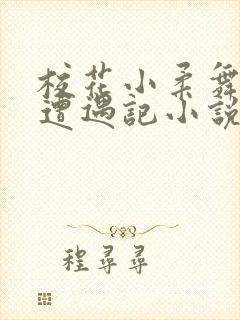 校花小柔舞
遭遇記小說
程尋尋